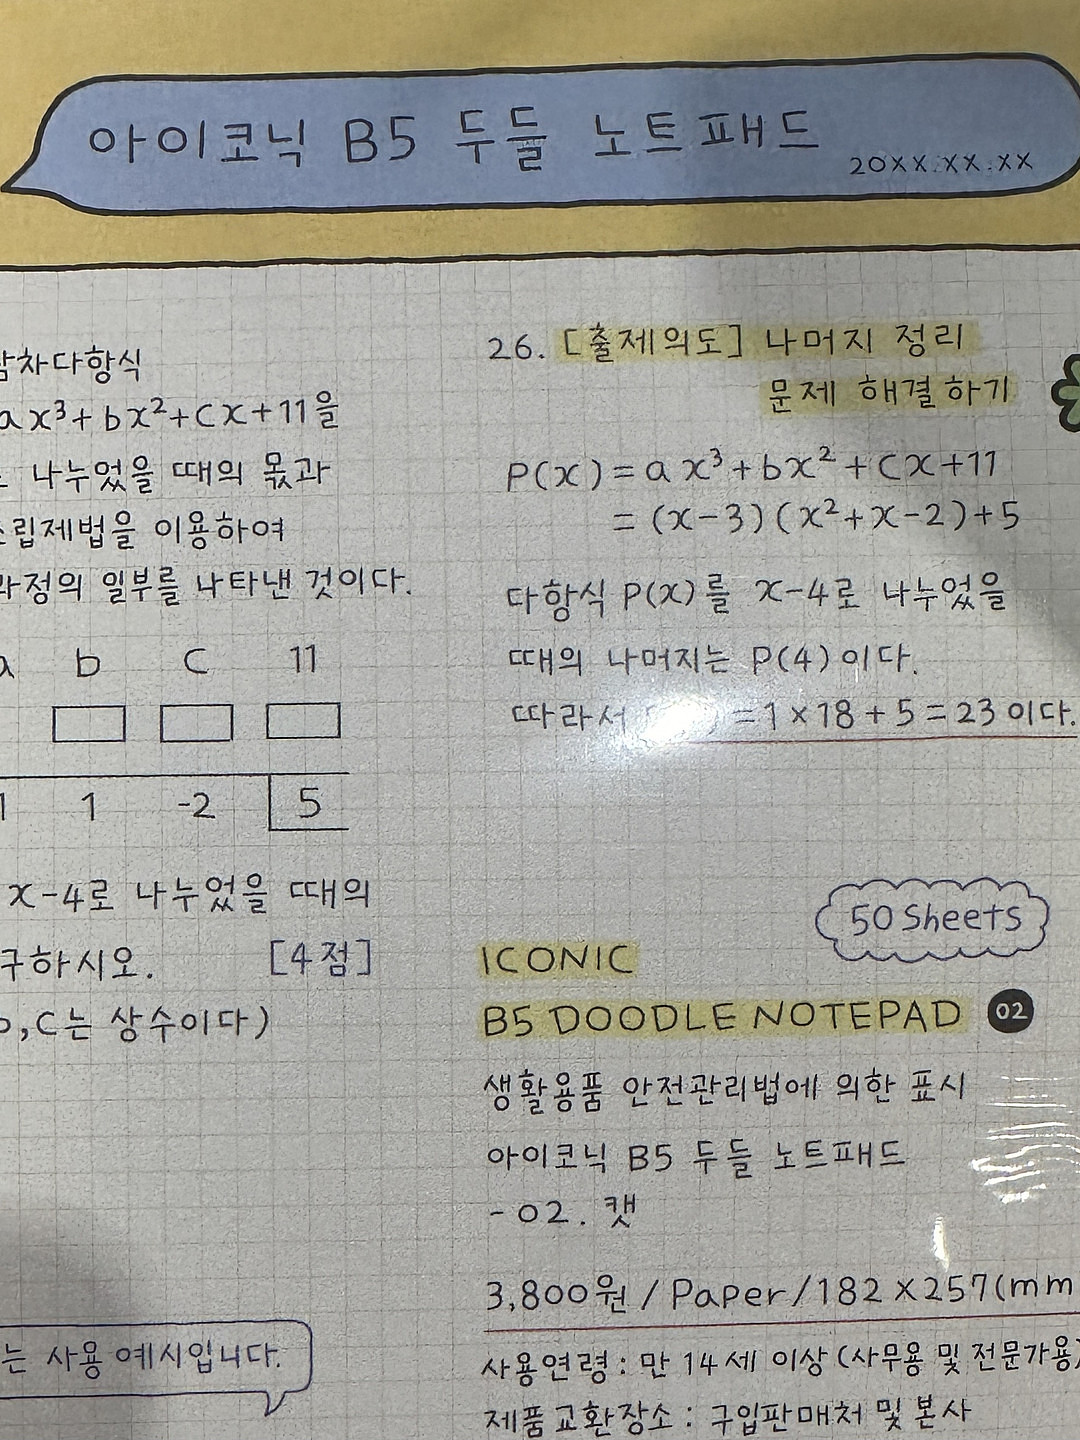 아이코닉 B5 두들 노트패드
20XX.XX.XX
삼차다항식
ax³+bx²+cx+11을
나누었을 때의 몫과
조립제법을 이용하여
과정의 일부를 나타낸 것이다.
a b c 11
1 1 -2 5
x-4로 나누었을 때의
구하시오. [4점]
b,c는 상수이다)
는 사용 예시입니다.
26. [출제의도] 나머지 정리
문제 해결하기
P(x)=ax³+bx²+cx+11
=(x-3)(x²+x-2)+5
다항식 P(x)를 x-4로 나누었을
때의 나머지는 P(4)이다.
따라서 =1×18+5=23이다.
50 Sheets
ICONIC
B5 DOODLE NOTEPAD 02
생활용품 안전관리법에 의한 표시
아이코닉 B5 두들 노트패드
-02. 캣
3,800원/Paper/182×257(mm
사용연령: 만 14세 이상 (사무용 및 전문가용)
제품교환장소: 구입판매처 및 본사